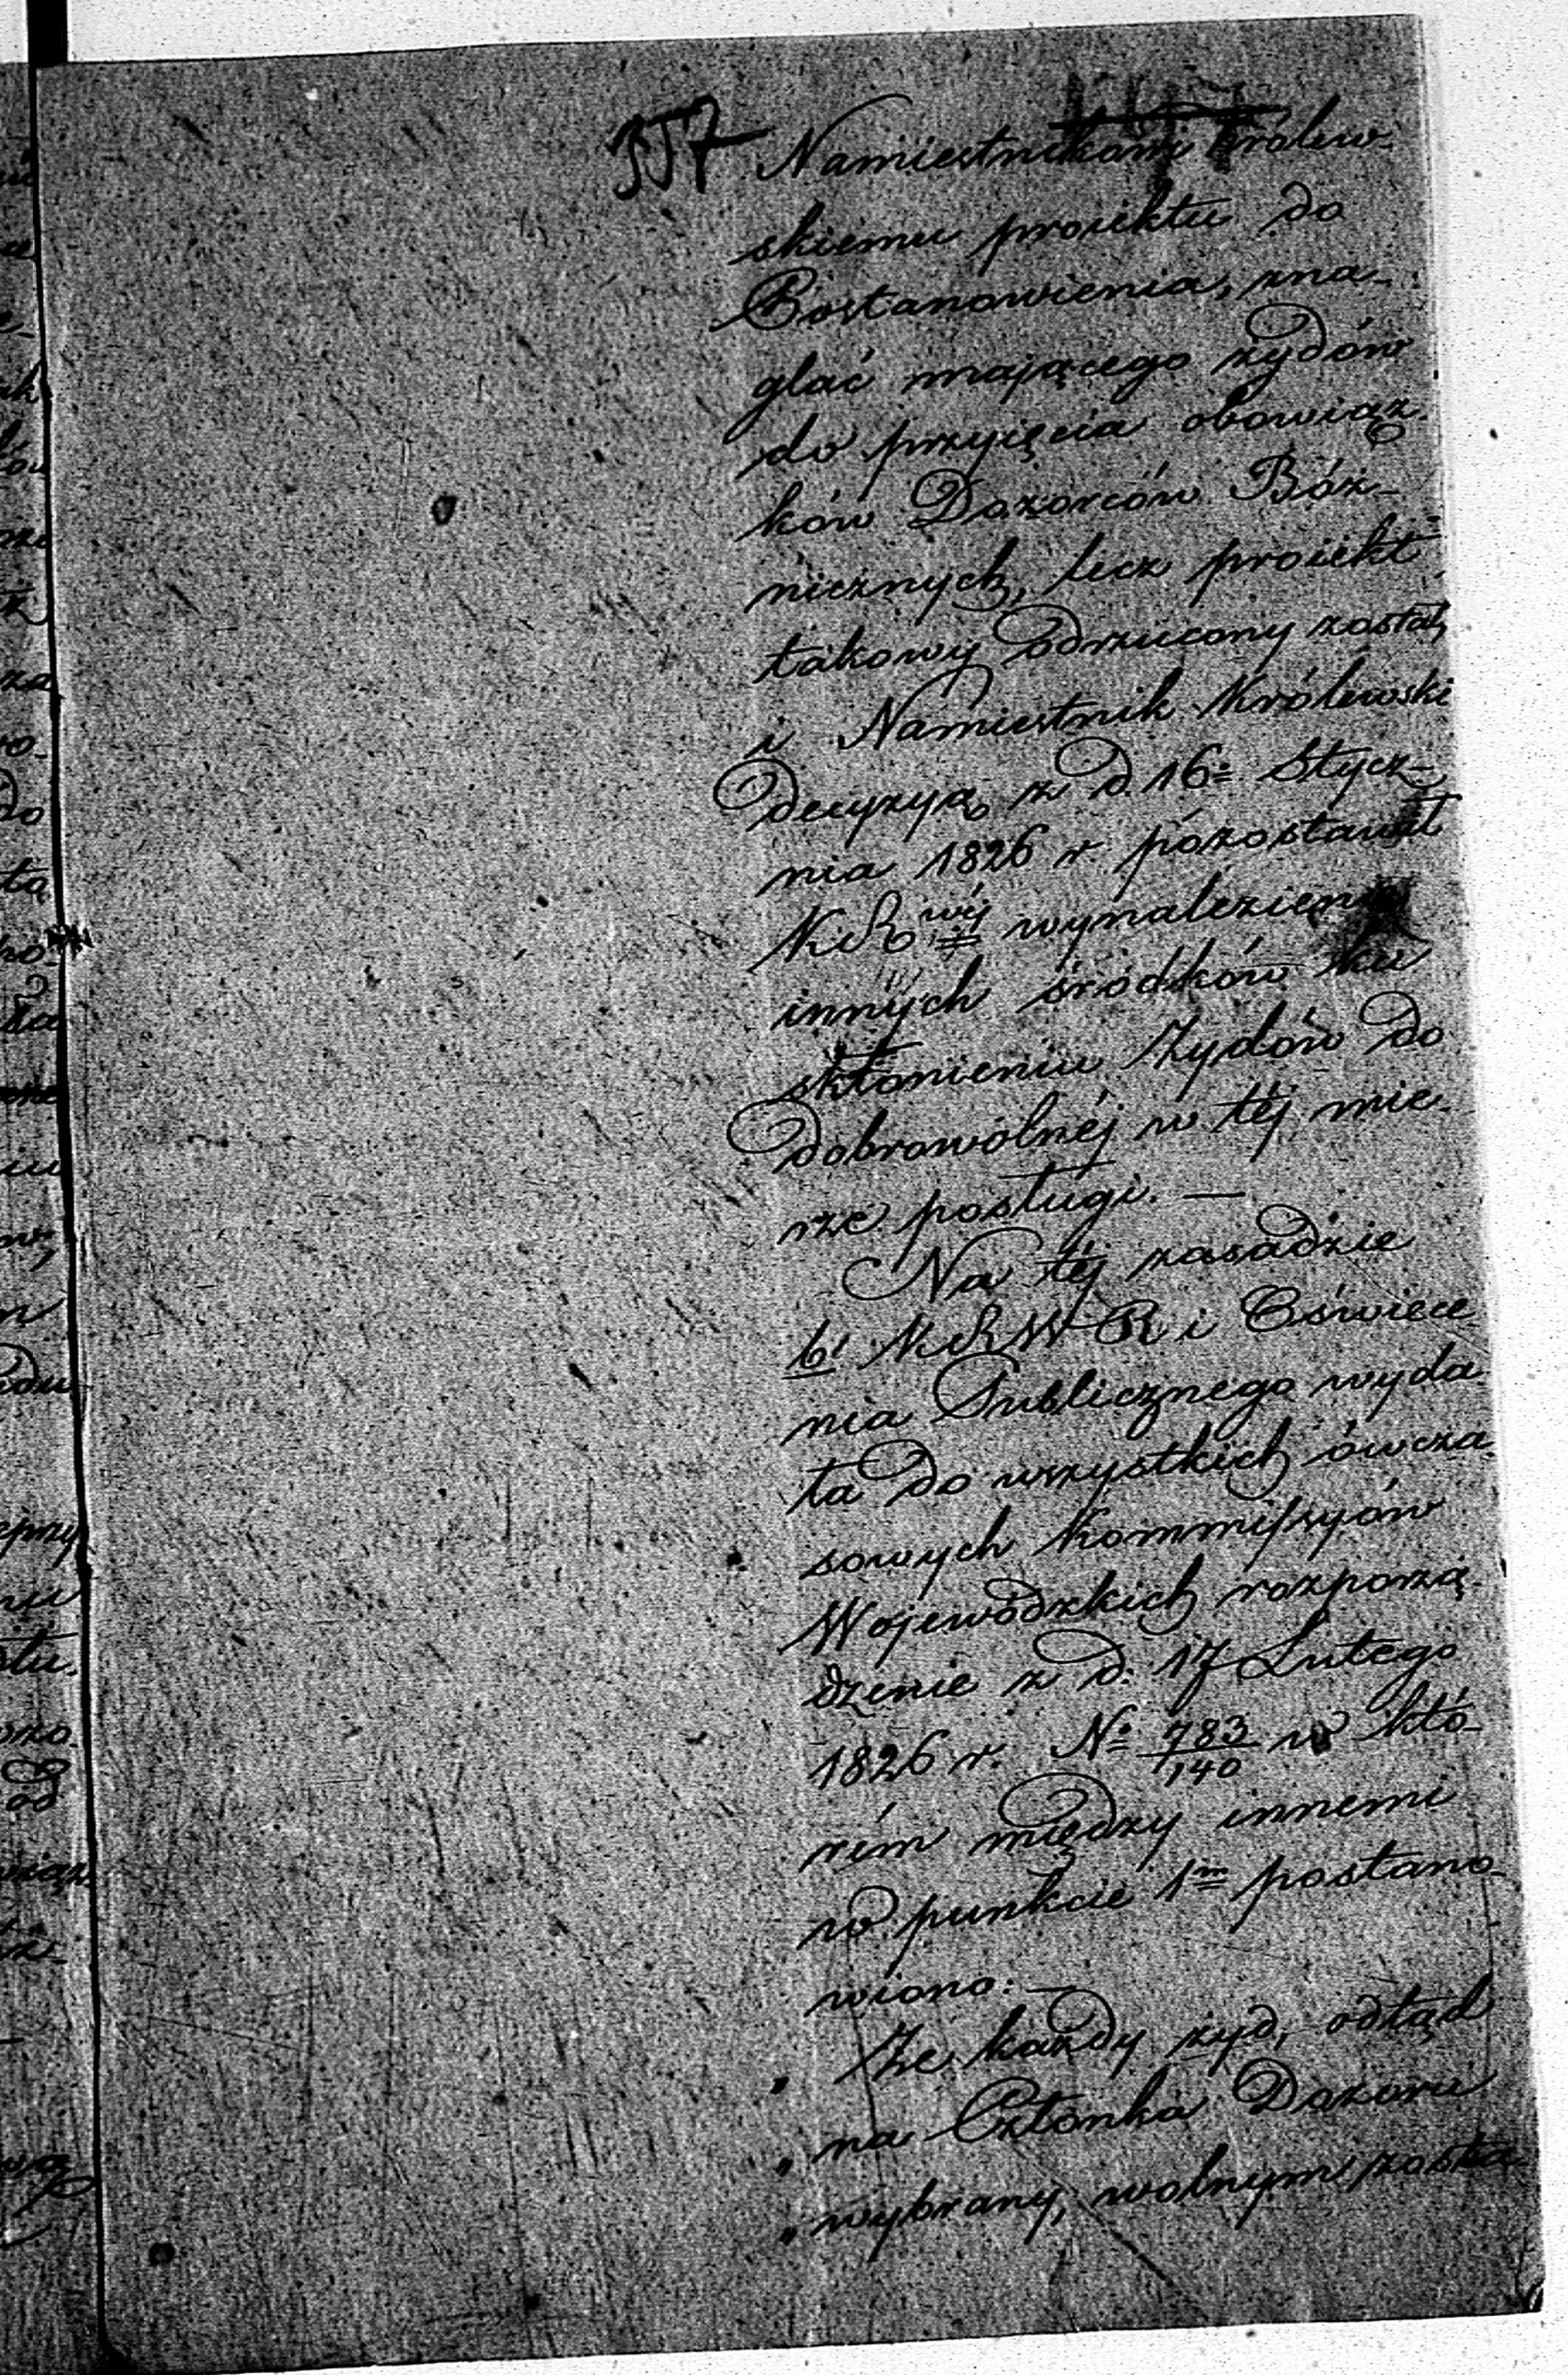 357
Namiestnikowi Królew-
skiemu proiektu do
Postanowienia, zna-
glać mającego żydów
do przyięcia obowiąz-
ków Dozorców Bóż-
nicznych, lecz proiekt
takowy odrzucony został,
i Namiestnik Królewski
decyzyą z d. 16º Stycz-
nia 1826 r. pozostawił
K. R. wéj wynalezienie
innych środków ku
skłonieniu Żydów do
dobrowolnéj w téj mie-
rze posługi. —
Na téj zasadzie
b. K R W R i Oświece-
nia Publicznego wyda-
ła do wszystkich ówcza-
sowych Kommissyów
Wojewódzkich rozporzą-
dzenie z d. 17 Lutego
1826 r. Nº 783/140 w któ-
rém między innemi
w punkcie 1m postano-
wiono: —
„ Że każdy żyd, odtąd
„ na Członka Dozoru
„ wybrany, wolnym zosta-